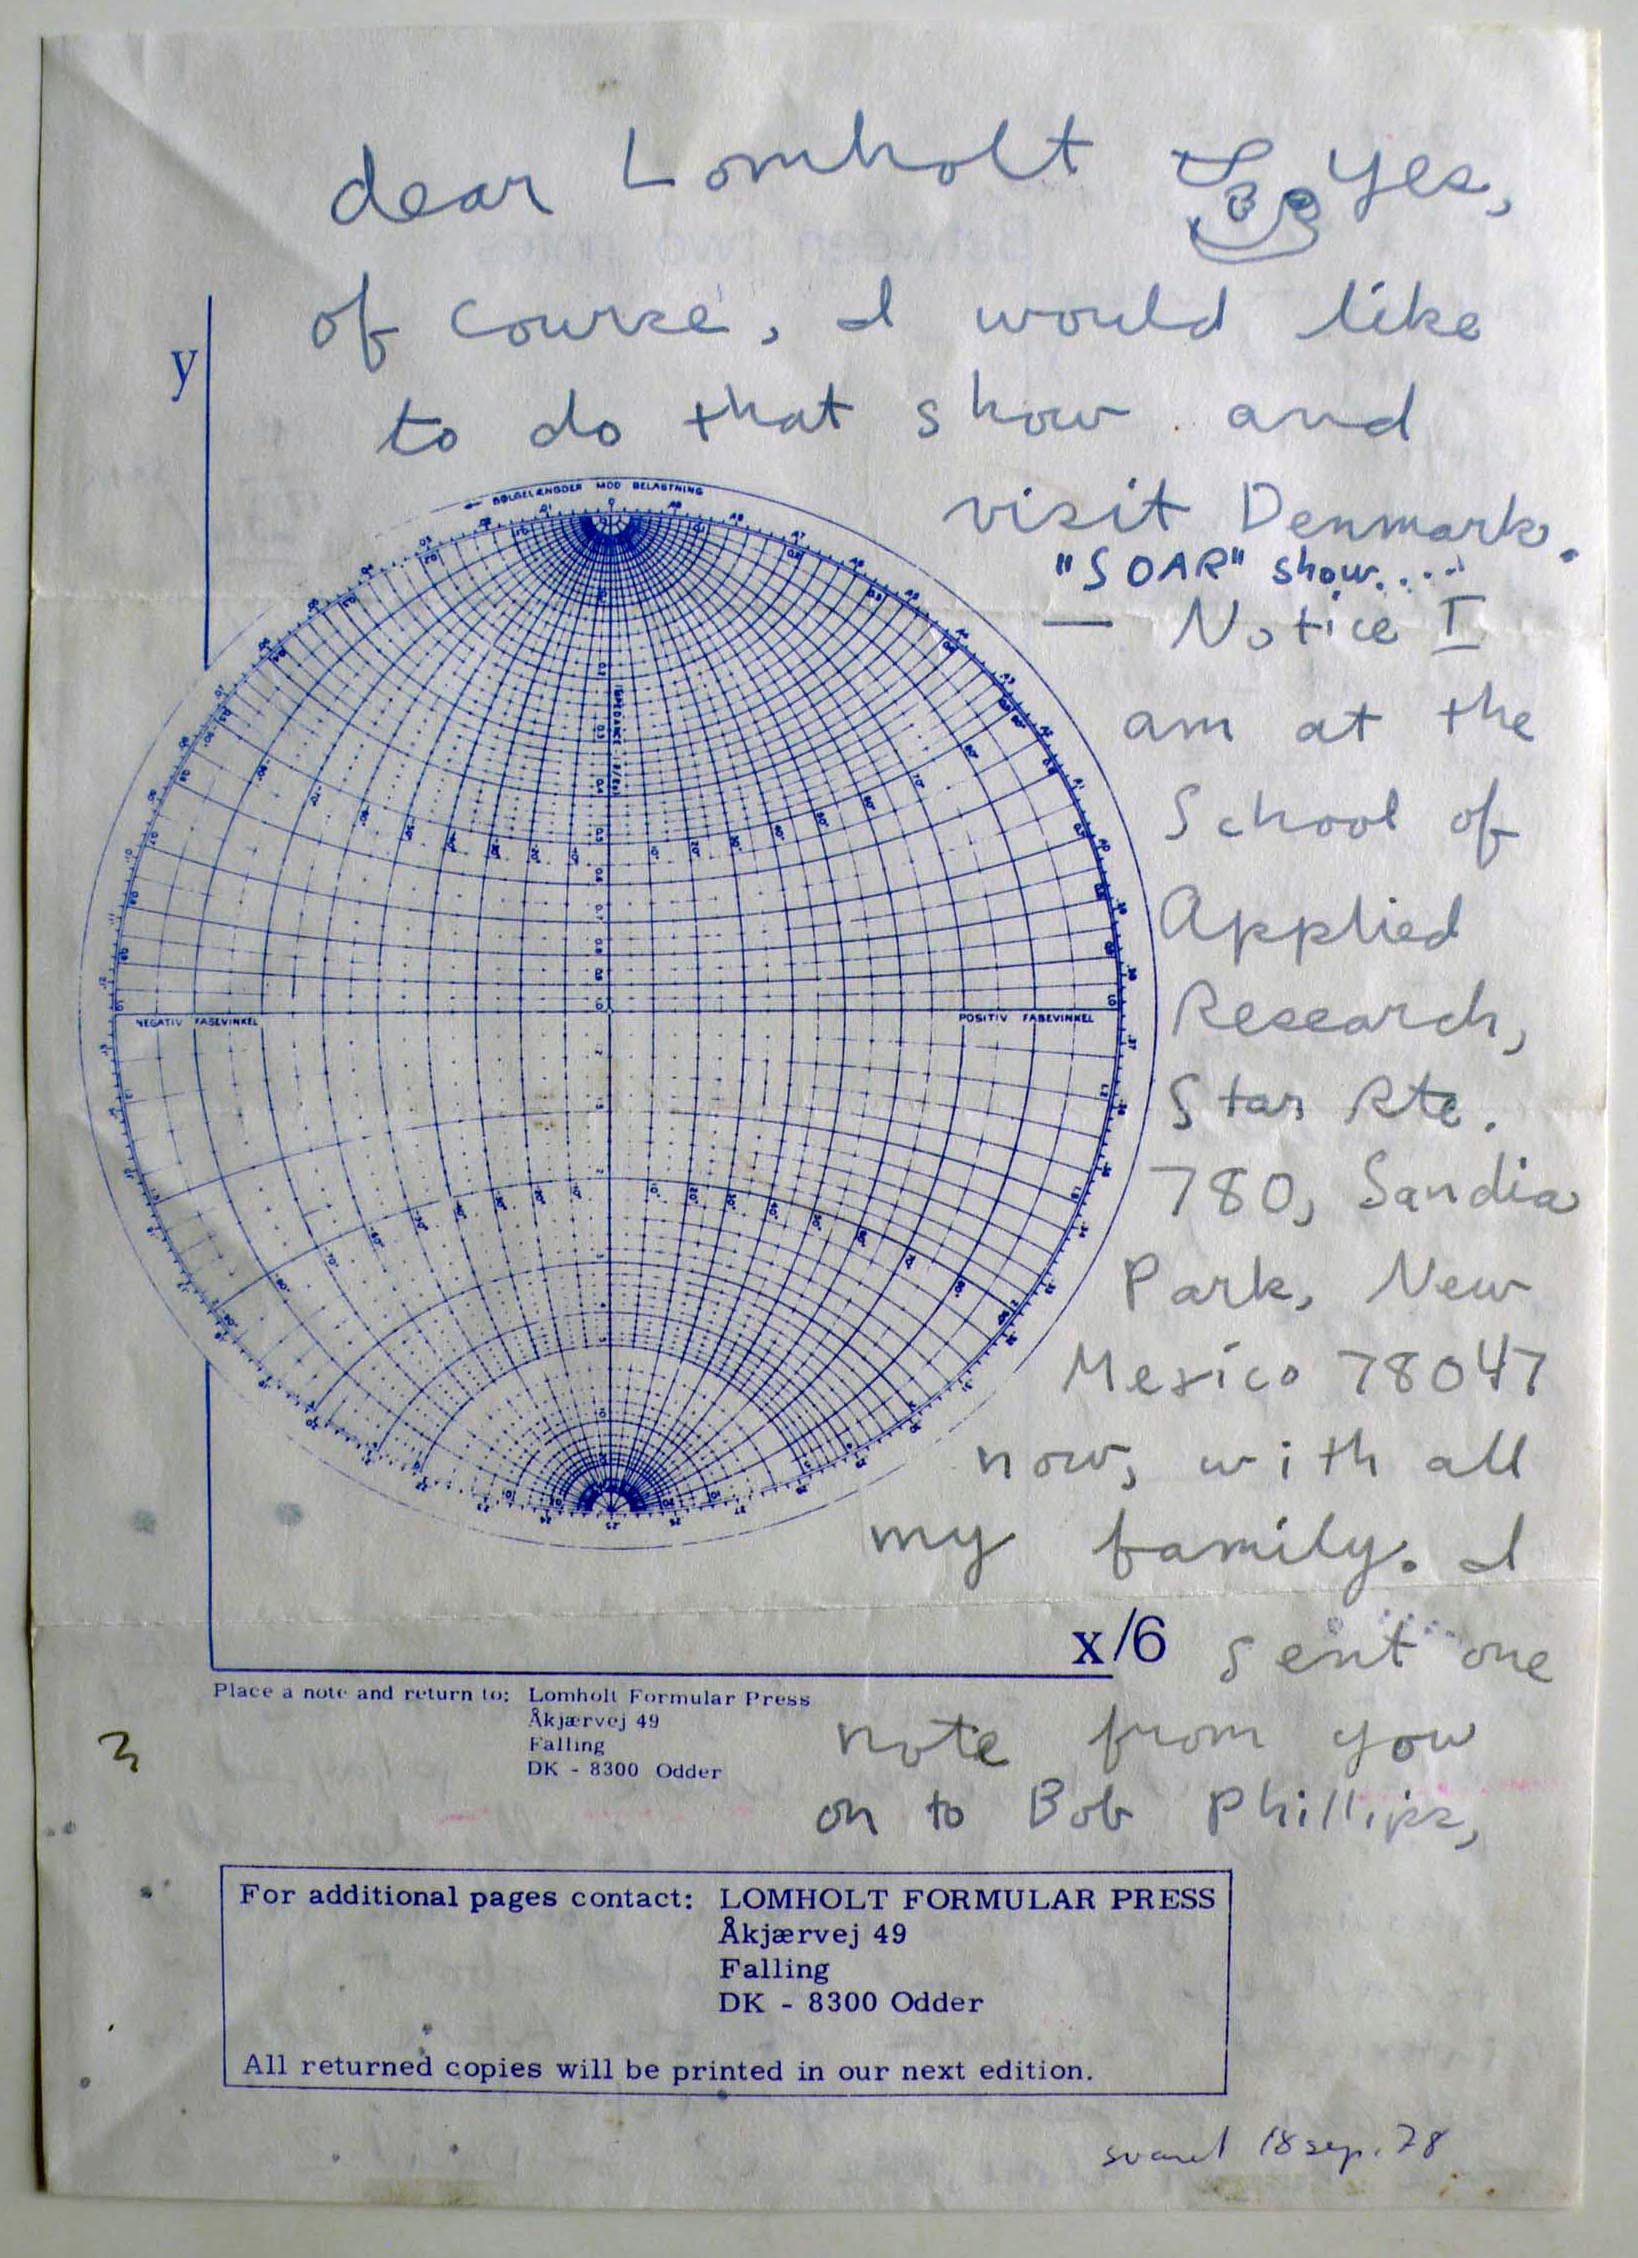 dear Lomholt Yes,
of course, I would like
to do that show and
visit Denmark.
"SOAR" show....
— Notice I
am at the
School of
Applied
Research,
Star Rte.
780, Sandia
Park, New
Mexico 78047
now, with all
my family. I
sent one
note from you
on to Bob Phillips,
y
BØLGELÆNGDER MOD BELASTNING
IMPEDANCE
NEGATIV FASEVINKEL
POSITIV FASEVINKEL
x/6
Place a note and return to: Lomholt Formular Press
Åkjærvej 49
Falling
DK - 8300 Odder
3
For additional pages contact: LOMHOLT FORMULAR PRESS
Åkjærvej 49
Falling
DK - 8300 Odder
All returned copies will be printed in our next edition.
svaret 18 sep. 78